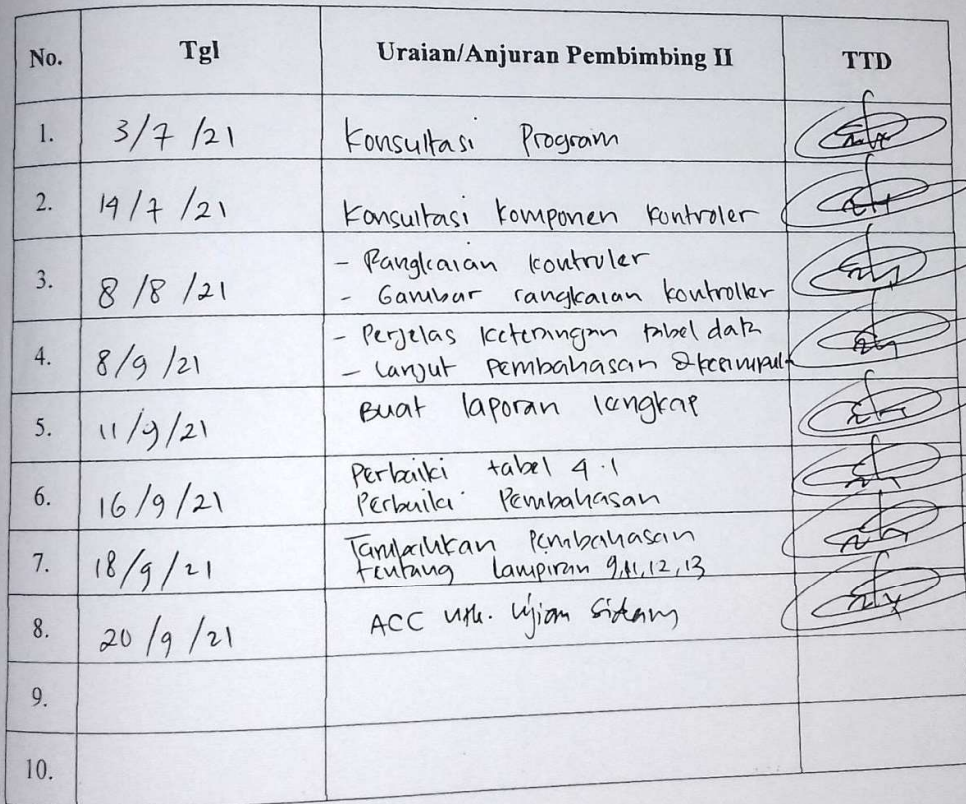 No. Tgl Uraian/Anjuran Pembimbing II TTD
1. 3/7/21 Konsultasi Program
2. 19/7/21 Konsultasi komponen kontroler
3. 8/8/21 - Rangkaian kontroler
- Gambar rangkaian kontroller
4. 8/9/21 - Perjelas keterangan tabel data
- Lanjut pembahasan & kesimpul
5. 11/9/21 Buat laporan lengkap
6. 16/9/21 Perbaiki tabel 4.1
Perbaiki Pembahasan
7. 18/9/21 Tambahkan pembahasan
tentang lampiran 9,11,12,13
8. 20/9/21 ACC utk. Ujian Sidang
9.
10.